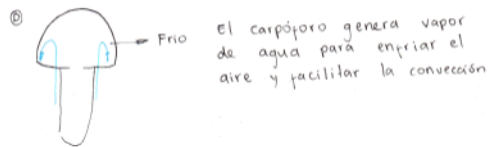 D
Frio
El carpóforo genera vapor
de agua para enfriar el
aire y facilitar la convección